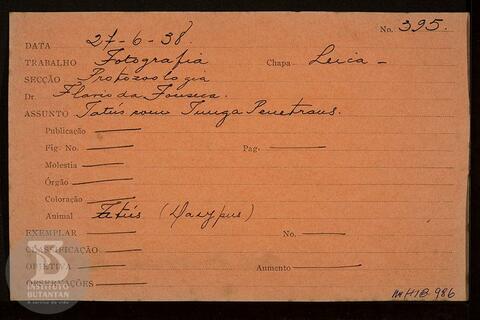 No. 395.
DATA 27-6-38.
TRABALHO Fotografia Chapa Leica -
SECÇÃO Protozoologia
Dr. Flavio da Fonseca.
ASSUNTO Tatús com Tunga Penetrans.
Publicação
Fig. No. Pag.
Molestia
Órgão
Coloração
Animal Tatús (Dasypus)
EXEMPLAR No.
CLASSIFICAÇÃO
OBJETIVA Aumento
OBSERVAÇÕES
INSTITUTO
BUTANTAN
A serviço da vida
HIB 986